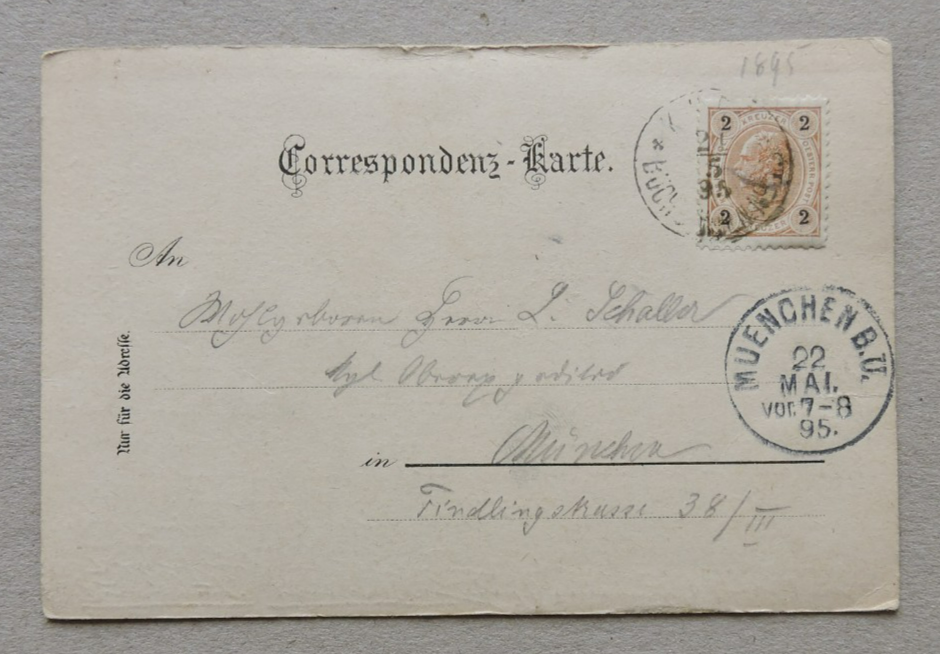 1895
Correspondenz-Karte.
2 KREUZER 2
OESTERR. POST
2 2
5
95
An
Wohlgeboren Herrn L. Schaller
Kgl.
München
in
Findlingstrasse 38/III
Nur für die Adresse.
MUENCHEN B.U.
22
MAI.
VOR.7-8
95.